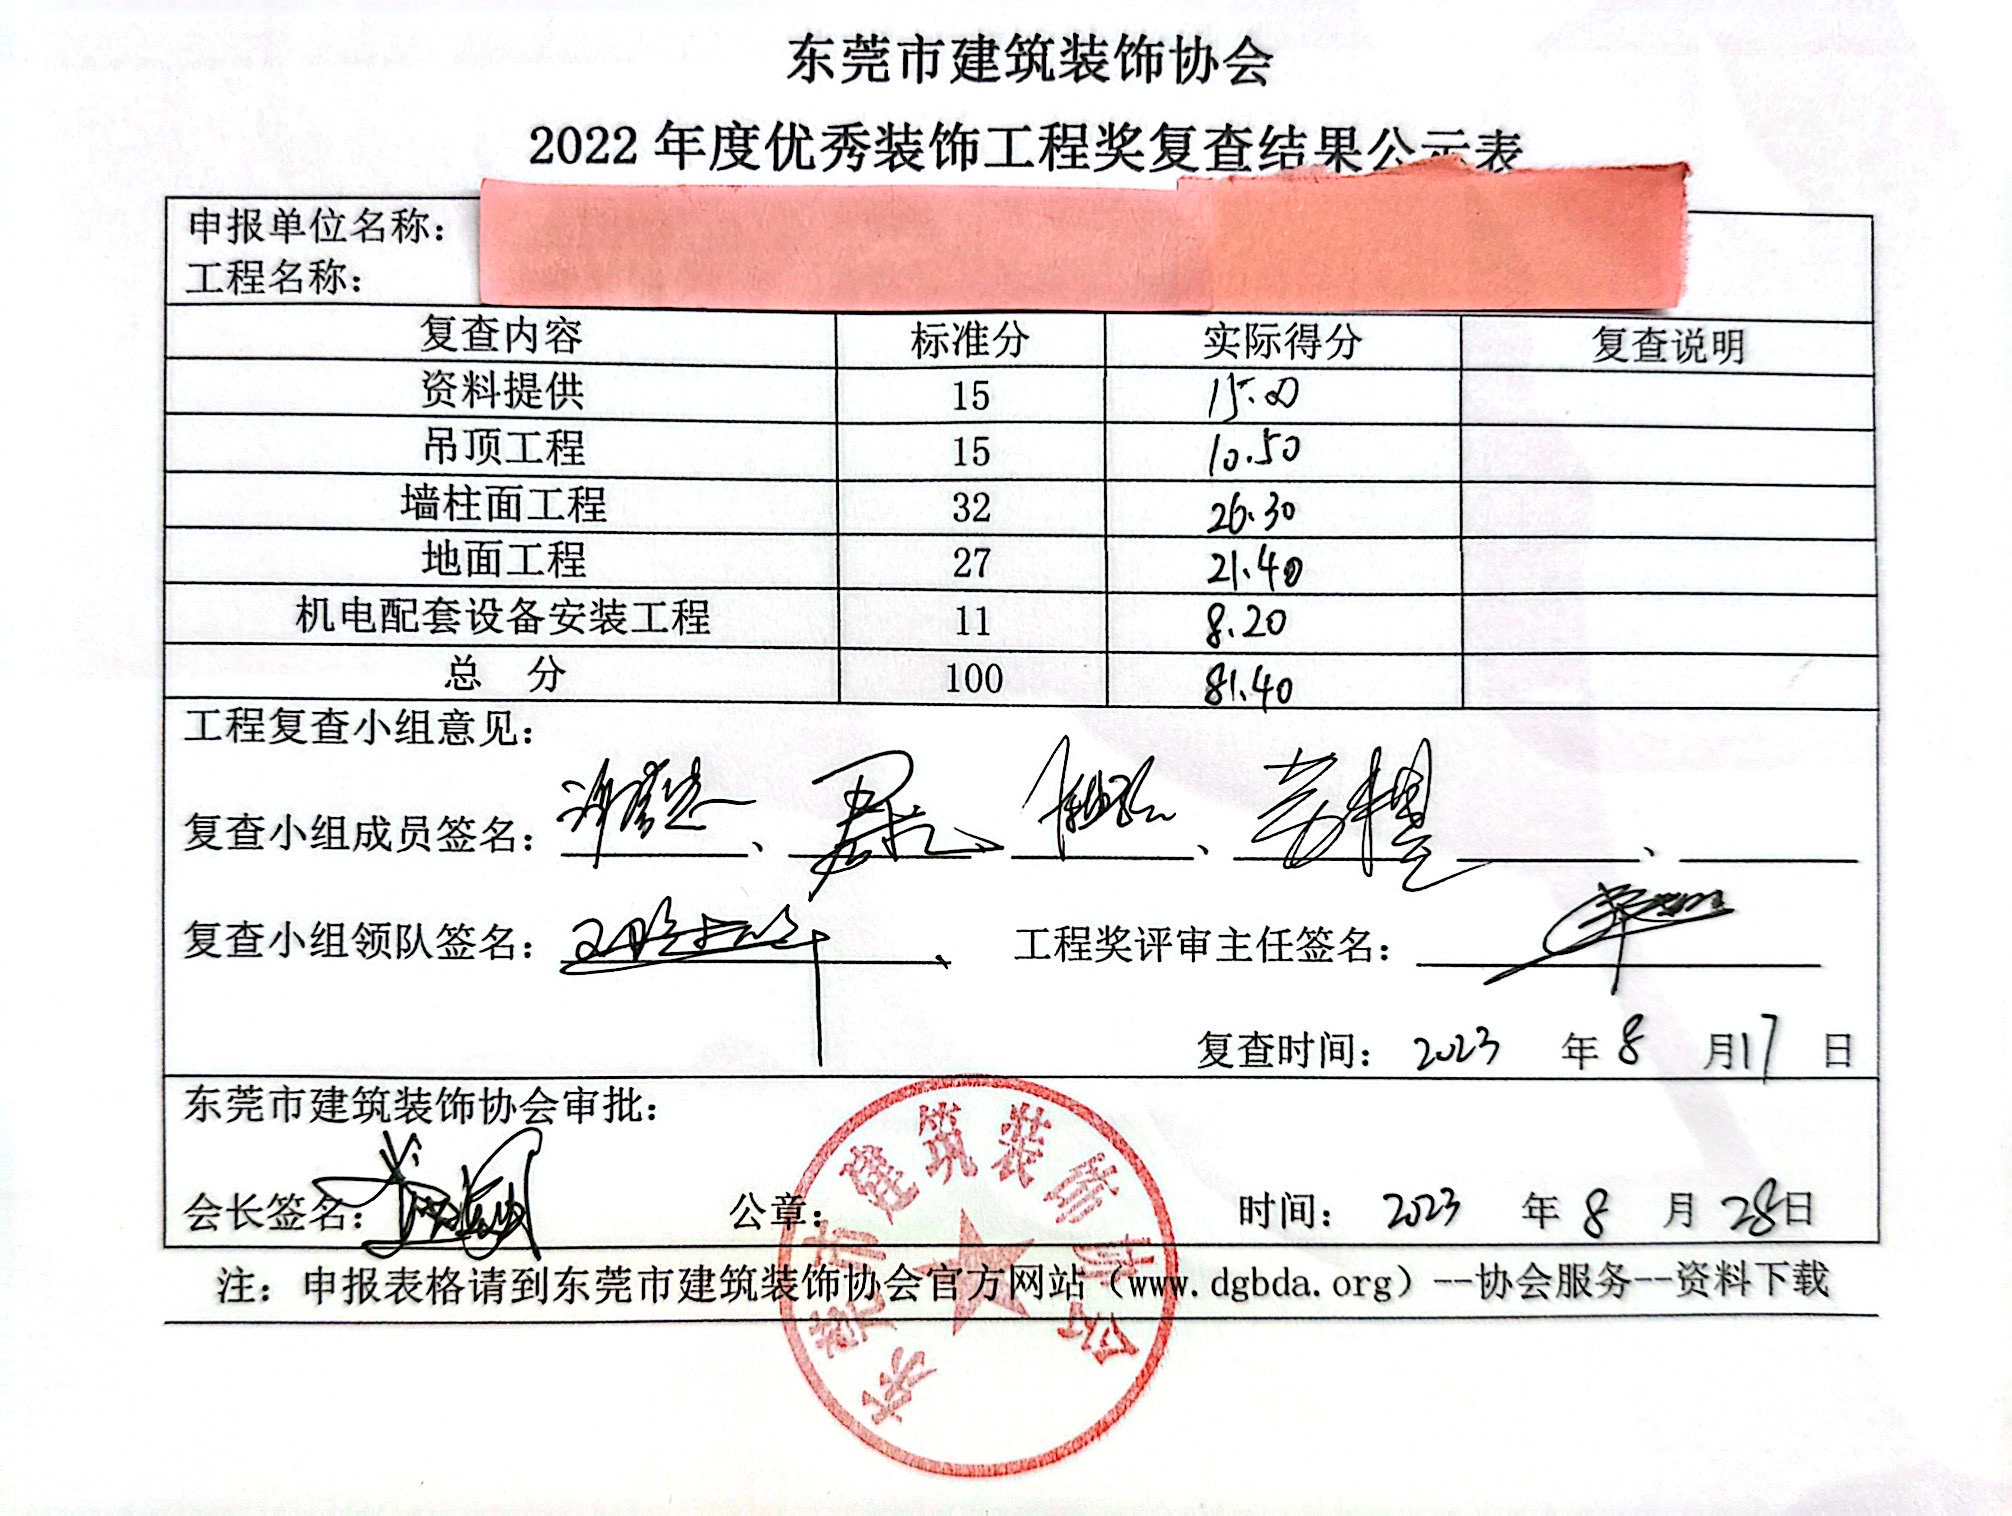 东莞市建筑装饰协会
2022 年度优秀装饰工程奖复查结果公示表
申报单位名称：
工程名称：
复查内容 标准分 实际得分 复查说明
资料提供 15 15.00
吊顶工程 15 10.50
墙柱面工程 32 26.30
地面工程 27 21.40
机电配套设备安装工程 11 8.20
总 分 100 81.40
工程复查小组意见：
复查小组成员签名： 、 、 、 、
复查小组领队签名： 、 工程奖评审主任签名：
复查时间： 2023 年 8 月 17 日
东莞市建筑装饰协会审批：
会长签名： 公章： 时间： 2023 年 8 月 28 日
注：申报表格请到东莞市建筑装饰协会官方网站（www.dgbda.org）--协会服务--资料下载
东莞市建筑装饰协会